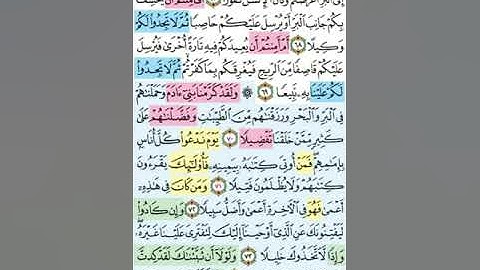 إِلَى ٱلْبَرِّ أَعْرَضْتُمْ وَكَانَ ٱلْإِنسَٰنُ كَفُورًا ٦٧ أَفَأَمِنتُمْ أَن يَخْسِفَ
بِكُمْ جَانِبَ ٱلْبَرِّ أَوْ يُرْسِلَ عَلَيْكُمْ حَاصِبًا ثُمَّ لَا تَجِدُوا۟ لَكُمْ
وَكِيلًا ٦٨ أَمْ أَمِنتُمْ أَن يُعِيدَكُمْ فِيهِ تَارَةً أُخْرَىٰ فَيُرْسِلَ
عَلَيْكُمْ قَاصِفًا مِّنَ ٱلرِّيحِ فَيُغْرِقَكُم بِمَا كَفَرْتُمْ ثُمَّ لَا تَجِدُوا۟
لَكُمْ عَلَيْنَا بِهِۦ تَبِيعًا ٦٩ ۞ وَلَقَدْ كَرَّمْنَا بَنِىٓ ءَادَمَ وَحَمَلْنَٰهُمْ
فِى ٱلْبَرِّ وَٱلْبَحْرِ وَرَزَقْنَٰهُم مِّنَ ٱلطَّيِّبَٰتِ وَفَضَّلْنَٰهُمْ عَلَىٰ
كَثِيرٍ مِّمَّنْ خَلَقْنَا تَفْضِيلًا ٧٠ يَوْمَ نَدْعُوا۟ كُلَّ أُنَاسٍۭ
بِإِمَٰمِهِمْ فَمَنْ أُوتِىَ كِتَٰبَهُۥ بِيَمِينِهِۦ فَأُو۟لَٰٓئِكَ يَقْرَءُونَ
كِتَٰبَهُمْ وَلَا يُظْلَمُونَ فَتِيلًا ٧١ وَمَن كَانَ فِى هَٰذِهِۦٓ
أَعْمَىٰ فَهُوَ فِى ٱلْءَاخِرَةِ أَعْمَىٰ وَأَضَلُّ سَبِيلًا ٧٢ وَإِن كَادُوا۟
لَيَفْتِنُونَكَ عَنِ ٱلَّذِىٓ أَوْحَيْنَآ إِلَيْكَ لِتَفْتَرِىَ عَلَيْنَا غَيْرَهُۥ
وَإِذًا لَّٱتَّخَذُوكَ خَلِيلًا ٧٣ وَلَوْلَآ أَن ثَبَّتْنَٰكَ لَقَدْ كِدتَّ